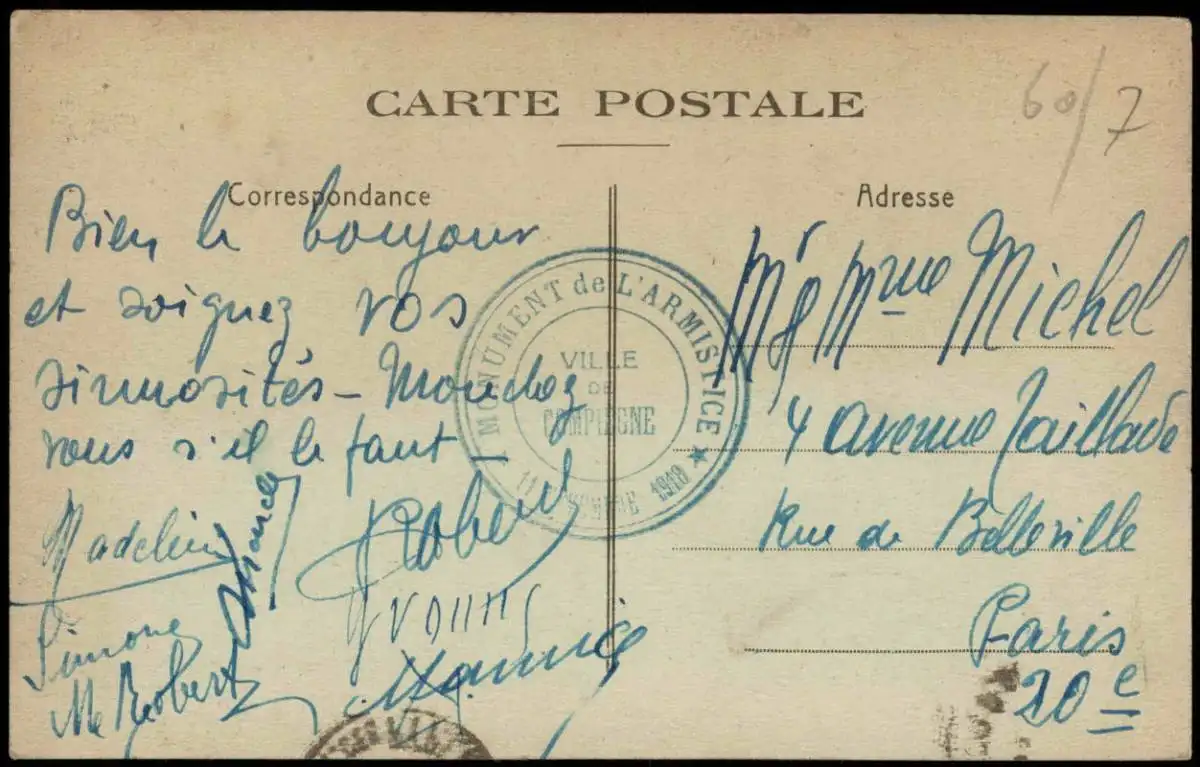 CARTE POSTALE
60/7
Correspondance
Bien le bonjour
et soignez vos
sinuosités - Mouchez
vous s'il le faut !
Madeleine
Robert
Yvonne
Simone
Maurice
Me Robert
MONUMENT de L'ARMISTICE
VILLE
DE
COMPIEGNE
11 NOVEMBRE 1918
Adresse
Mr & Mme Michel
4 avenue Taillade
Rue de Belleville
Paris
20e